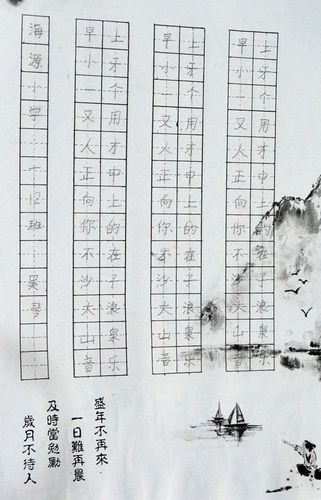 上牙个用才中上的在子浪泉乐
早小一又火正向你不沙大山音
上牙个用才中上的在子浪泉乐
早小一又火正向你不沙大山音
上牙个用才中上的在子浪泉乐
早小一又火正向你不沙大山音
海源小学 六 班 吴琴
盛年不再來
一日難再晨
及時當勉勵
歲月不待人